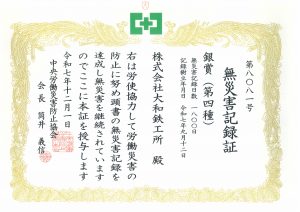 第八〇八一号
無災害記録証
無災害記録日数 一八〇〇日
記録樹立年月日 令和七年九月十二日
銀賞(第四種)
株式会社大和鉄工所 殿
右は労使協力して労働災害の
防止に努め頭書の無災害記録を
達成し無災害を継続されています
のでここに本証を授与します
令和七年十二月一日
中央労働災害防止協会
会長 筒井義信